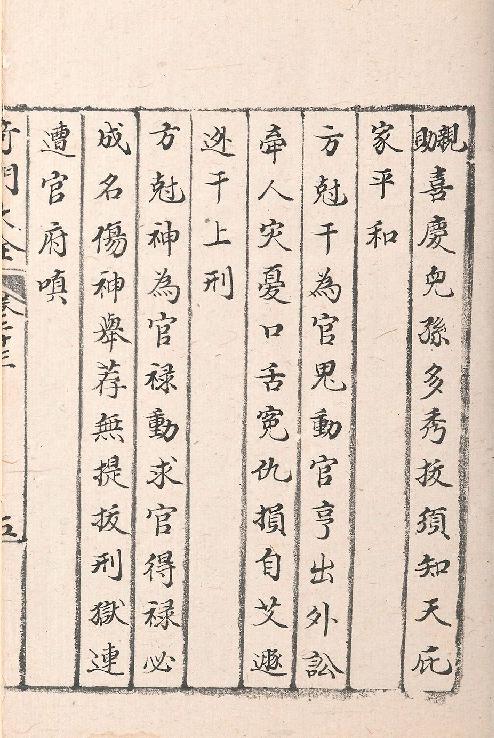 親助喜慶兒孫多秀拔須知天庇
家平和
方尅干為官鬼動官亨出外訟
牽人灾憂口舌寃仇損自艾遯
迯干上刑
方尅神為官禄動求官得禄必
成名傷神舉荐無提拔刑獄連
遭官府嗔
奇門大全 卷二十三 五